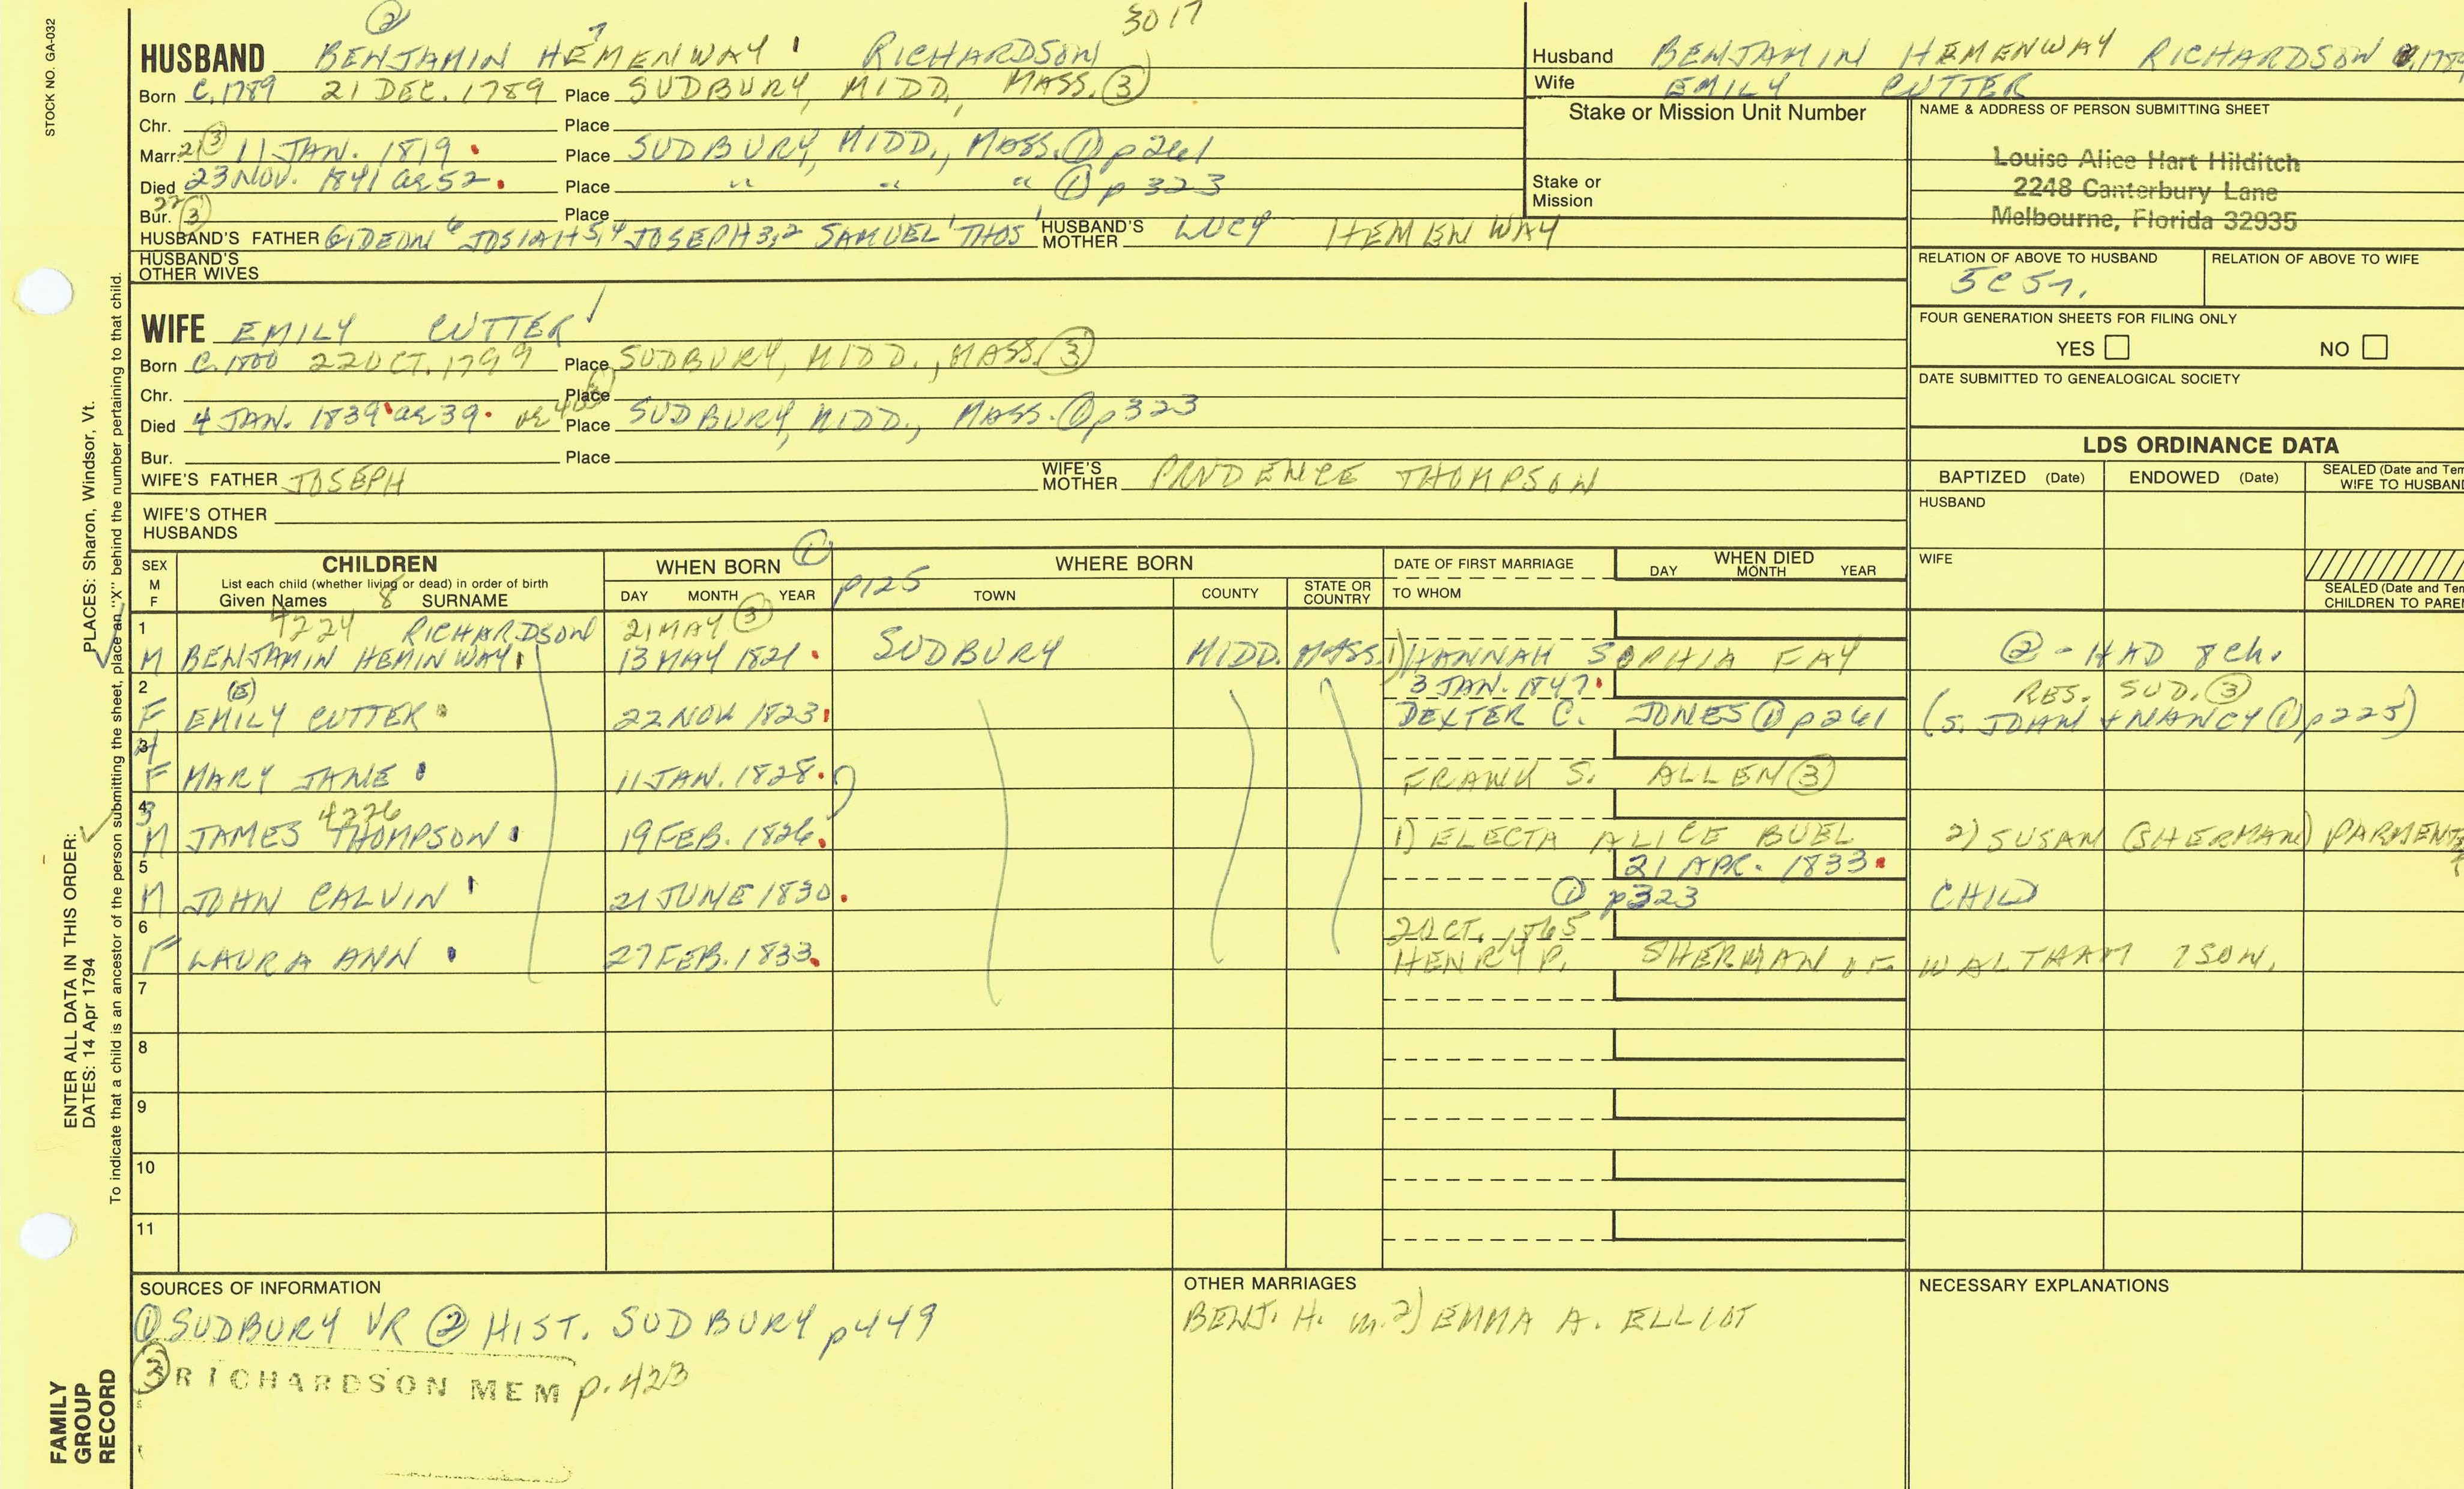 STOCK NO. GA-032
② 3017
HUSBAND BENJAMIN HEMENWAY 7 RICHARDSON
Born C.1789 21 DEC. 1789 Place SUDBURY, MIDD., MASS. ③
Chr. Place
Marr. 21 ③ 11 JAN. 1819 Place SUDBURY, MIDD., MASS. ① p 261
Died 23 NOV. 1841 ae 52 Place " " " ① p 323
22 ③
Bur. Place
HUSBAND'S FATHER GIDEON 6 JOSIAH 5,4 JOSEPH 3,2 SAMUEL 1 THOS HUSBAND'S MOTHER LUCY HEMENWAY
HUSBAND'S OTHER WIVES
WIFE EMILY CUTTER
Born C.1800 22 OCT. 1799 Place SUDBURY, MIDD., MASS. ③
Chr. Place
Died 4 JAN. 1839 ae 39. ae 40 ③ Place SUDBURY, MIDD., MASS. ① p323
Bur. Place
WIFE'S FATHER JOSEPH WIFE'S MOTHER PRUDENCE THOMPSON
WIFE'S OTHER HUSBANDS
Husband BENJAMIN HEMENWAY RICHARDSON C.1789
Wife EMILY CUTTER
Stake or Mission Unit Number
Stake or Mission
NAME & ADDRESS OF PERSON SUBMITTING SHEET
Louise Alice Hart Hilditch
2248 Canterbury Lane
Melbourne, Florida 32935
RELATION OF ABOVE TO HUSBAND RELATION OF ABOVE TO WIFE
5C5r.
FOUR GENERATION SHEETS FOR FILING ONLY
YES NO
DATE SUBMITTED TO GENEALOGICAL SOCIETY
LDS ORDINANCE DATA
BAPTIZED (Date) ENDOWED (Date) SEALED (Date and Tem WIFE TO HUSBAND
HUSBAND
WIFE
SEALED (Date and Tem CHILDREN TO PAREN
SEX M F CHILDREN WHEN BORN ① p125 WHERE BORN DATE OF FIRST MARRIAGE WHEN DIED
List each child (whether living or dead) in order of birth
Given Names 8 SURNAME DAY MONTH YEAR TOWN COUNTY STATE OR COUNTRY TO WHOM DAY MONTH YEAR
1 4224 RICHARDSON 21 MAY ③
M BENJAMIN HEMINWAY 13 MAY 1821 SUDBURY MIDD. MASS. 1) HANNAH SOPHIA FAY ② - HAD 8 ch.
2 3 JAN. 1847 RES. SUD. ③
F EMILY CUTTER 22 NOV 1823 DEXTER C. JONES ① p261 (S. JOHN + NANCY ① p225)
3 4
F MARY JANE 11 JAN. 1828 FRANK S. ALLEN ③
4 3 4226
M JAMES THOMPSON 19 FEB. 1826 1) ELECTA ALICE BUEL 2) SUSAN (SHERMAN) PARMENTE
5 21 APR. 1833
M JOHN CALVIN 21 JUNE 1830 ① p323 CHILD
6 2 OCT. 1865
F LAURA ANN 27 FEB. 1833 HENRY P. SHERMAN OF WALTHAM 1 SON.
7
8
9
10
11
SOURCES OF INFORMATION
① SUDBURY VR ② HIST. SUDBURY p449
③ RICHARDSON MEM p. 423
OTHER MARRIAGES
BENJ. H. m. 2) EMMA A. ELLIOT
NECESSARY EXPLANATIONS
FAMILY GROUP RECORD
ENTER ALL DATA IN THIS ORDER:
DATES: 14 Apr 1794
PLACES: Sharon, Windsor, Vt.
To indicate that a child is an ancestor of the person submitting the sheet, place an "X" behind the number pertaining to that child.